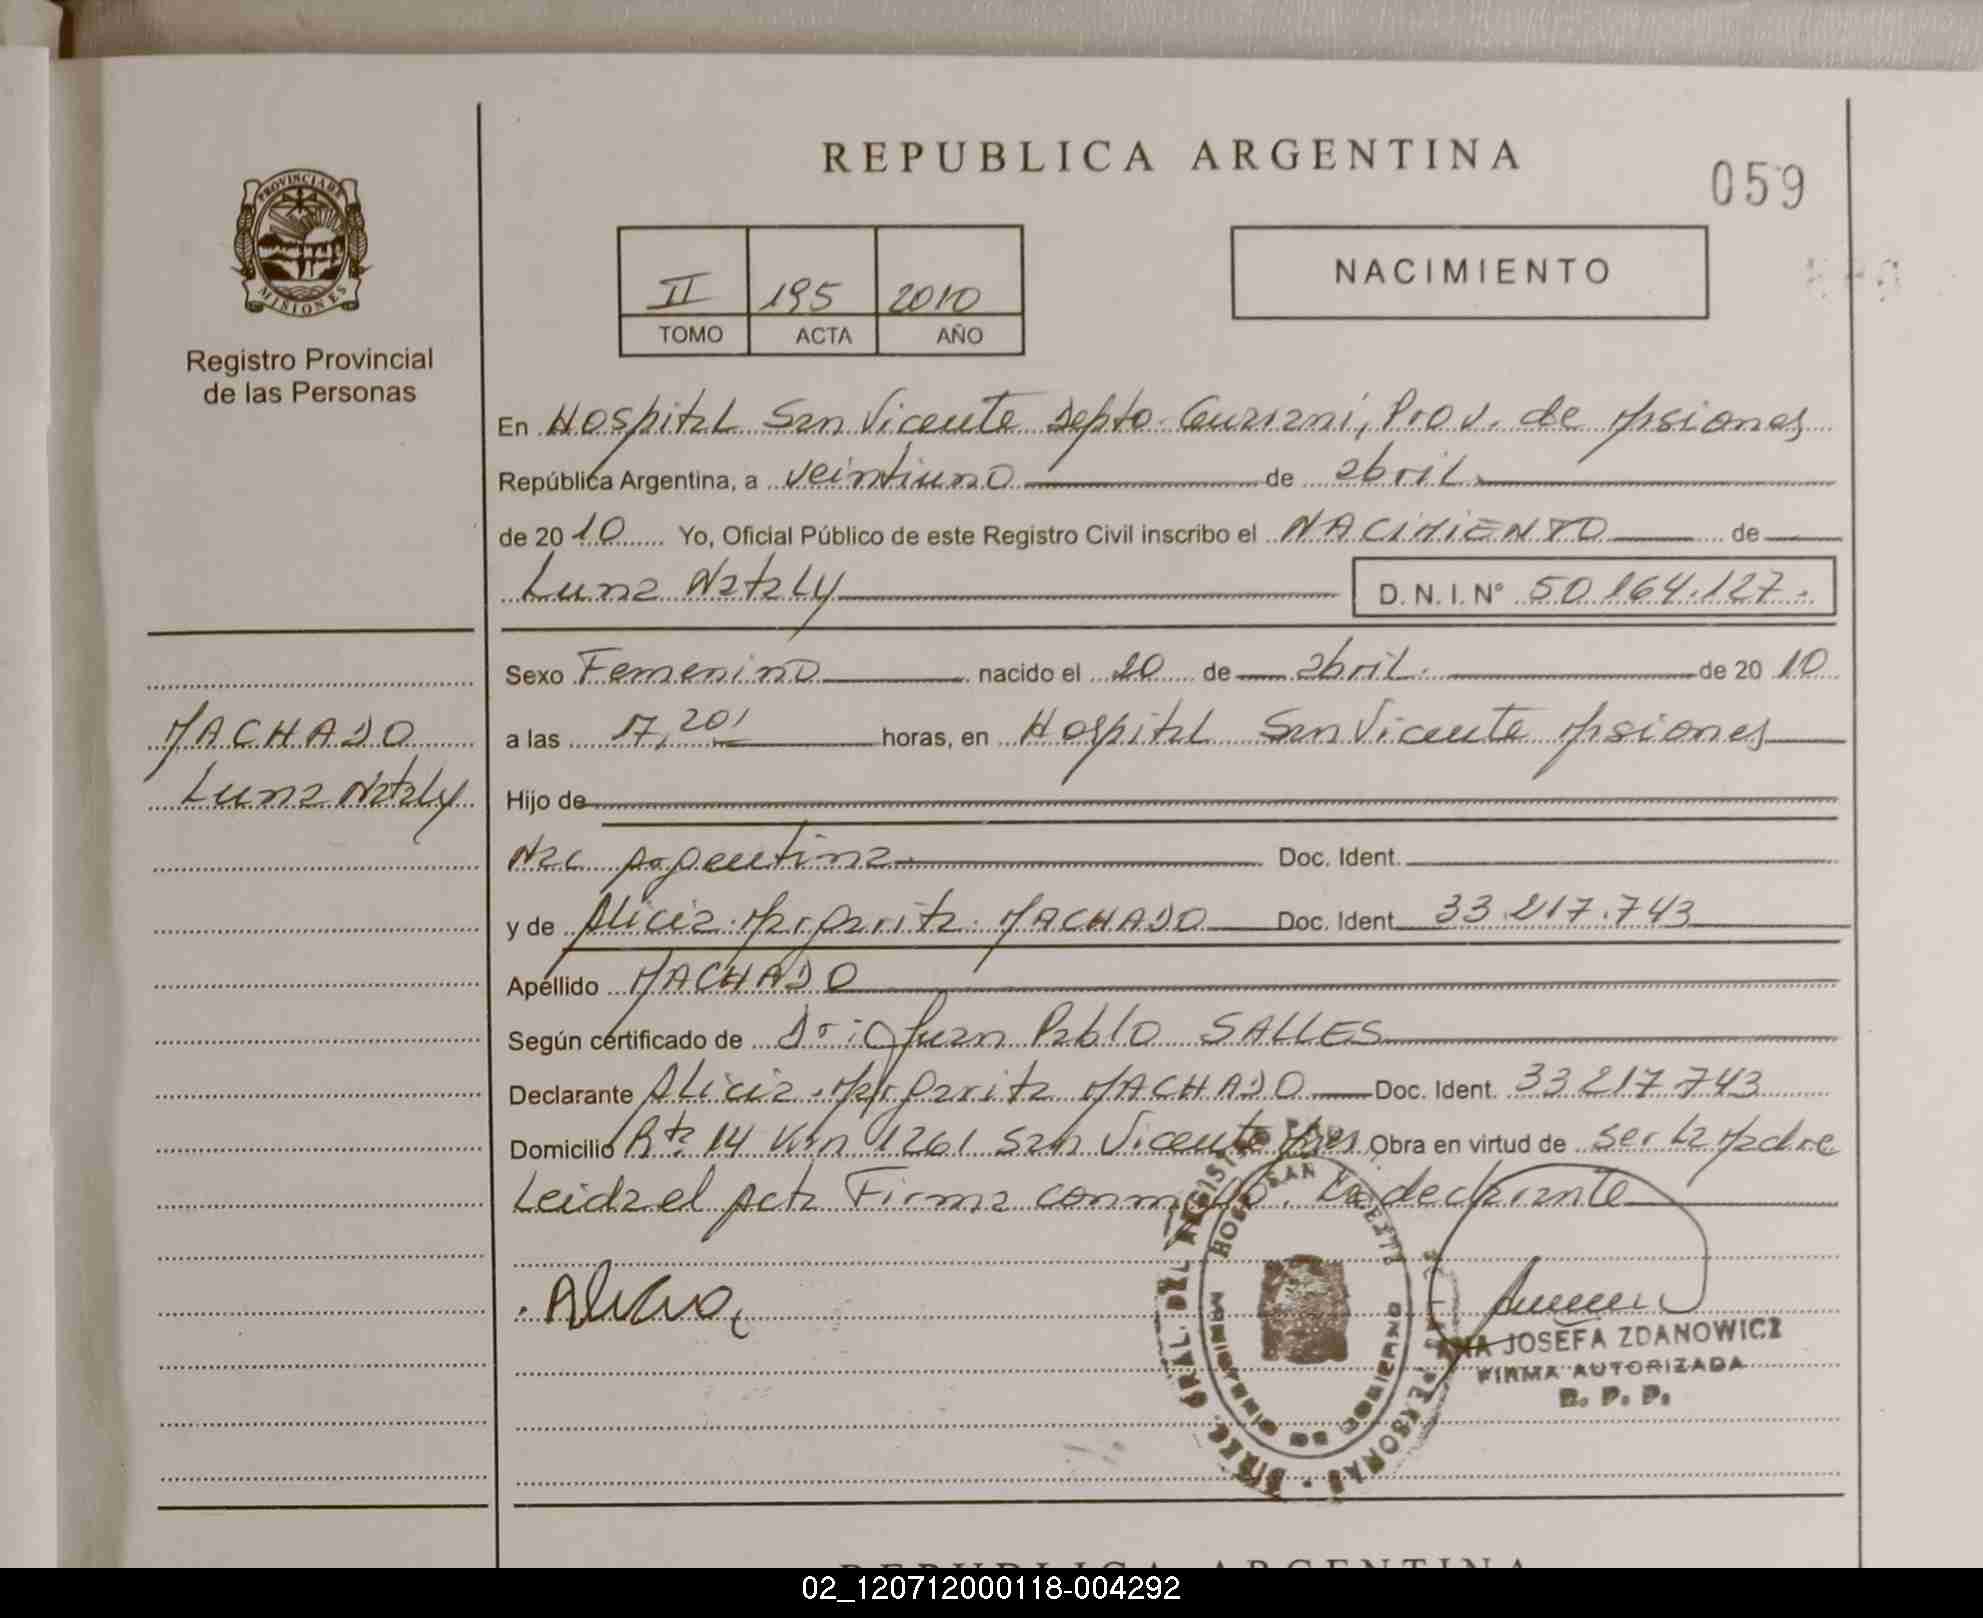 REPUBLICA ARGENTINA
059
PROVINCIA DE
MISIONES
Registro Provincial
de las Personas
II 195 2010
TOMO ACTA AÑO
NACIMIENTO
En Hospital San Vicente Depto. Guarani, Prov. de Msiones
República Argentina, a veintiuno de abril
de 20 10 Yo, Oficial Público de este Registro Civil inscribo el NACIMIENTO de
Luna Nataly D. N. I. N° 50.164.127.
Sexo Femenino nacido el 20 de abril. de 20 10
a las 17,20' horas, en Hospital San Vicente Msiones
MACHADO
Luna Nataly
Hijo de
Nac Argentina. Doc. Ident.
y de Alicia Margarita MACHADO Doc. Ident. 33.217.743
Apellido MACHADO
Según certificado de Juan Pablo SALLES
Declarante Alicia Margarita MACHADO Doc. Ident. 33 217 743
Domicilio Rta 14 Km 1261 San Vicente Mnes Obra en virtud de ser la Madre
Leida el Acta Firma La declarante
Alicia
HOSP. SAN VICENTE
DIREC. GRAL. DEL REGISTRO PERSONAS
MINISTERIO DE GOBIERNO
JOSEFA ZDANOWICZ
FIRMA AUTORIZADA
R. P. P.
REPUBLICA ARGENTINA
02_120712000118-004292